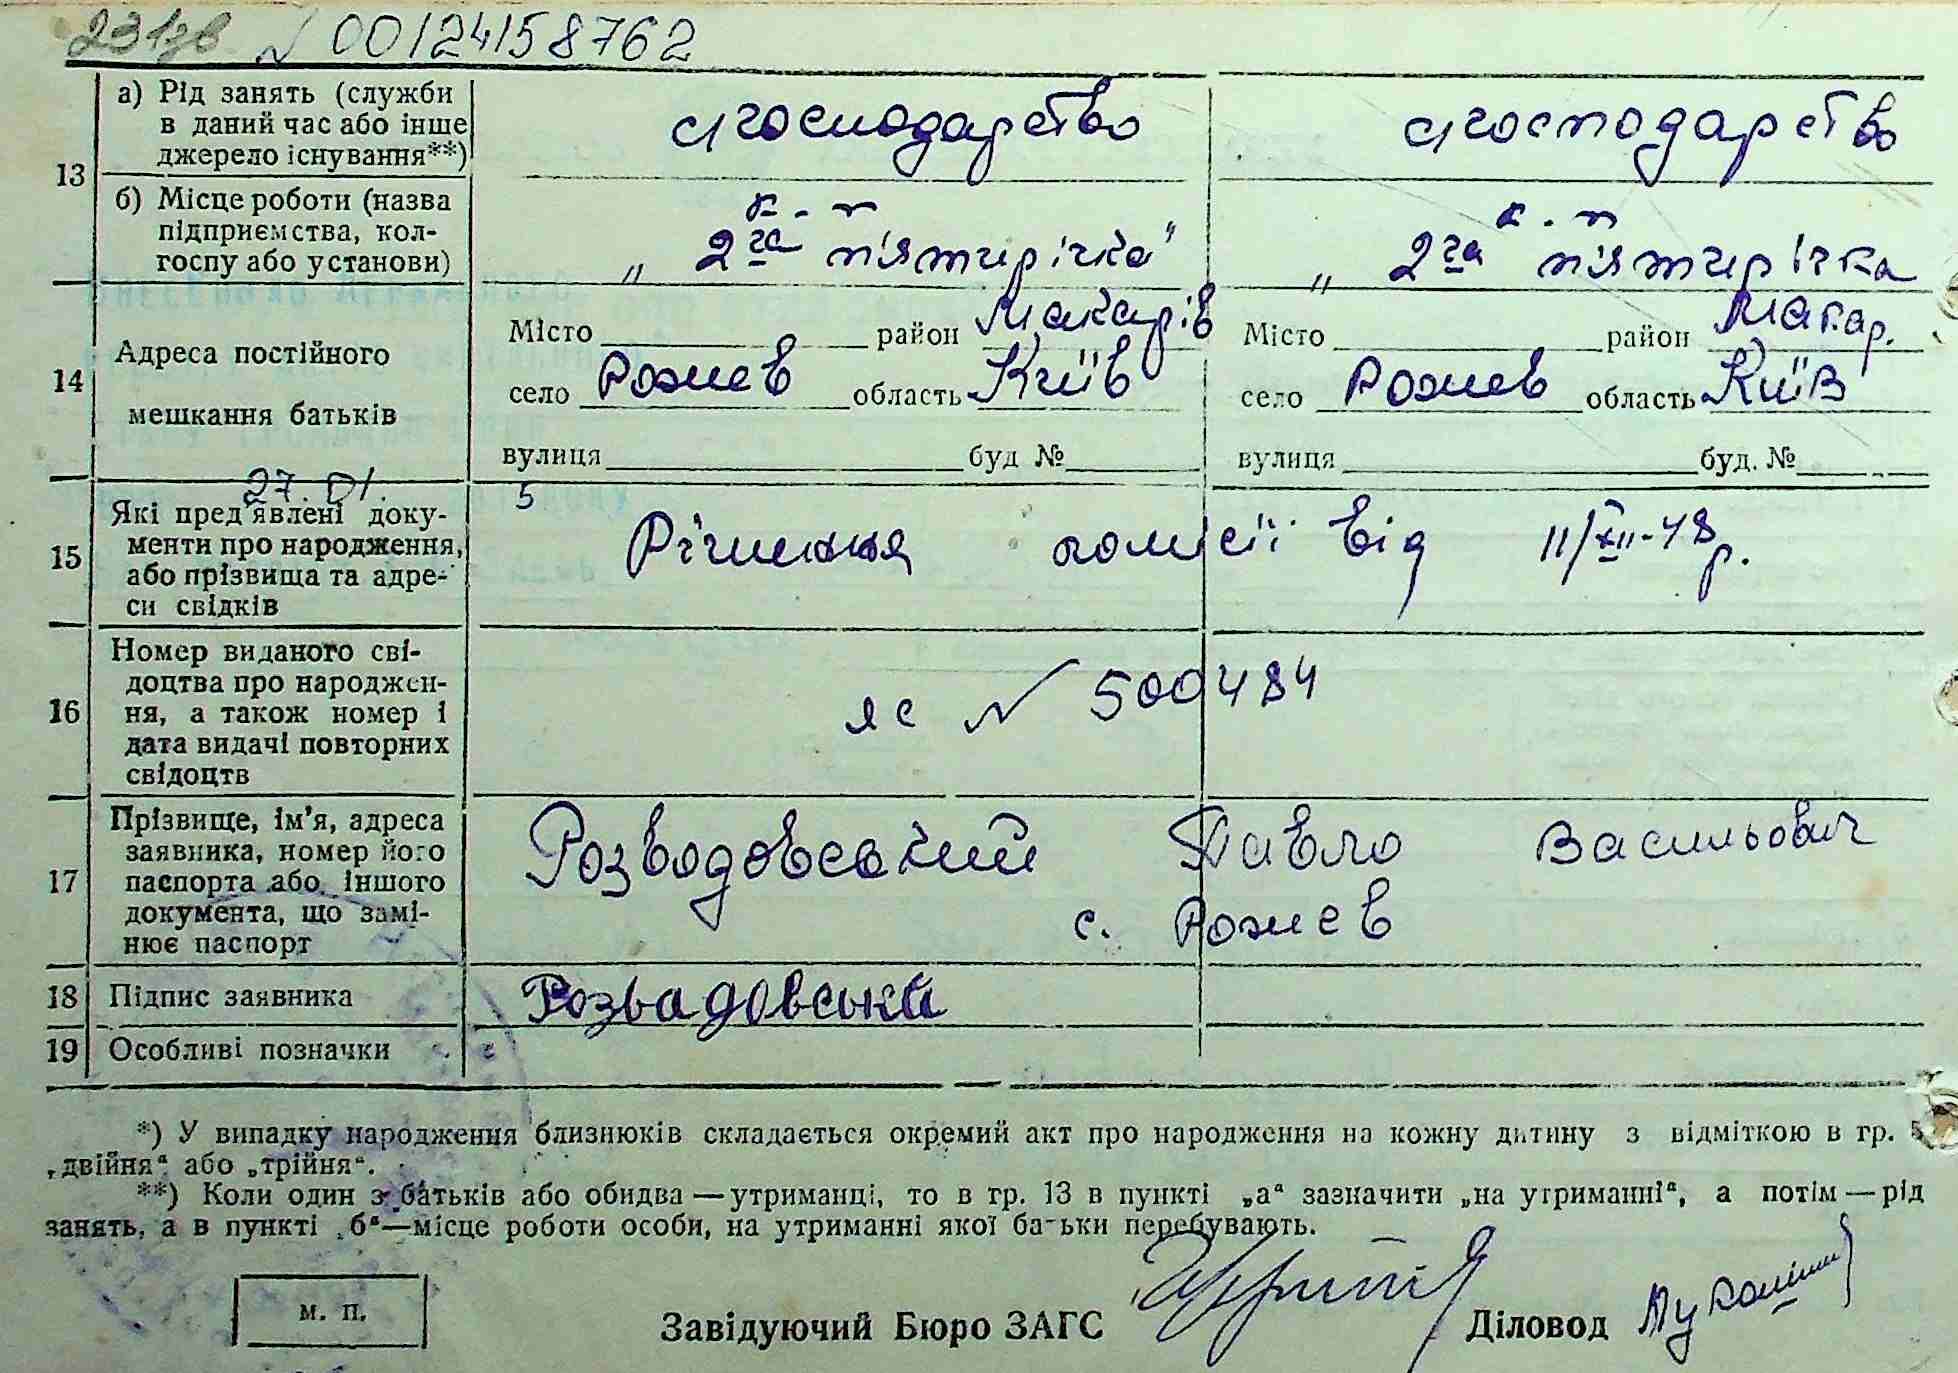 231зв № 00124158762
13
а) Рід занять (служби
в даний час або інше
джерело існування**)
с/господарство
с/господарство
б) Місце роботи (назва
підприємства, кол-
госпу або установи)
к-п
„2га п'ятирічка"
к-п
„2га п'ятирічка
14
Адреса постійного
мешкання батьків
Місто район Макарів
село Рожев область Київ
вулиця буд №
Місто район Макар.
село Рожев область Київ
вулиця буд. №
27.01. 5
15
Які пред'явлені доку-
менти про народження,
або прізвища та адре-
си свідків
Рішення комісії від 11/XII-48 р.
16
Номер виданого сві-
доцтва про народжен-
ня, а також номер і
дата видачі повторних
свідоцтв
яс № 500484
17
Прізвище, ім'я, адреса
заявника, номер його
паспорта або іншого
документа, що замі-
нює паспорт
Розводовський Павло Васильович
с. Рожев
18 Підпис заявника
Розвадовський
19 Особливі позначки
*) У випадку народження близнюків складається окремий акт про народження на кожну дитину з відміткою в гр. 5
„двійня" або „трійня".
**) Коли один з батьків або обидва—утриманці, то в гр. 13 в пункті „а" зазначити „на утриманні", а потім—рід
занять, а в пункті „б"—місце роботи особи, на утриманні якої батьки перебувають.
м. п.
Завідуючий Бюро ЗАГС
Діловод